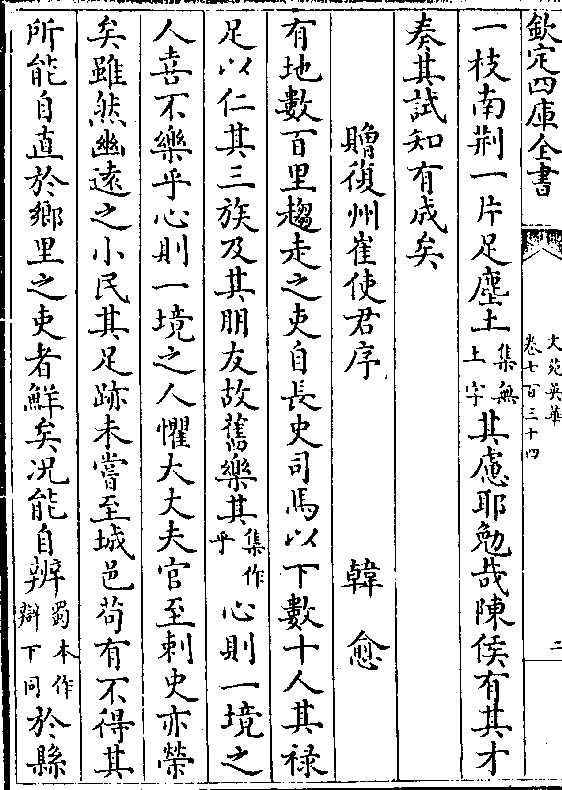 欽定四庫全書
文苑英華
卷七百三十四
二
一枝南荆一片足塵土集無土字其慮耶勉哉陳侯有其才
奏其試知有成矣
贈復州崔使君序 韓愈
有地數百里趨走之吏自長史司馬以下數十人其禄
足以仁其三族及其朋友故舊樂其集作乎心則一境之
人喜不樂乎心則一境之人懼大丈夫官至刺史亦榮
矣雖然幽遠之小民其足跡未嘗至城邑茍有不得其
所能自直於鄉里之吏者鮮矣况能自辨蜀本作辯下同於縣